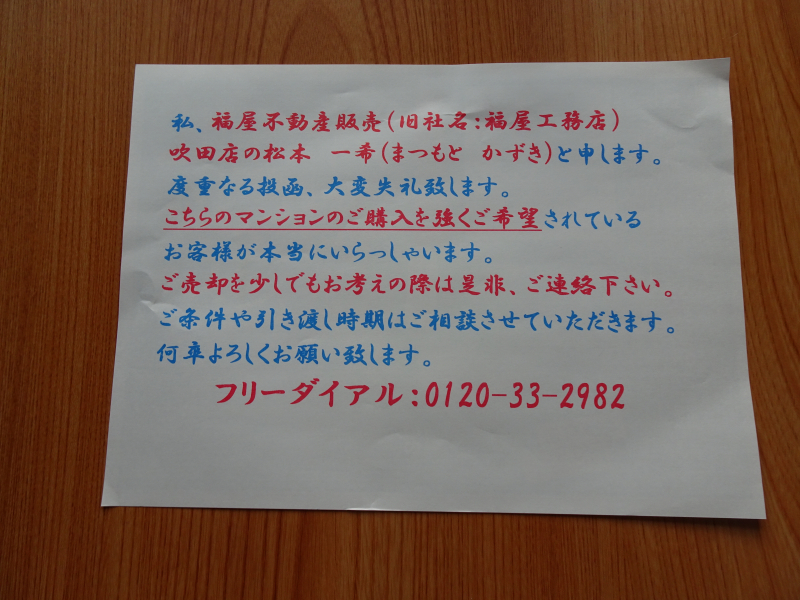 私、福屋不動産販売(旧社名:福屋工務店)
吹田店の松本 一希(まつもと かずき)と申します。
度重なる投函、大変失礼致します。
こちらのマンションのご購入を強くご希望されている
お客様が本当にいらっしゃいます。
ご売却を少しでもお考えの際は是非、ご連絡下さい。
ご条件や引き渡し時期はご相談させていただきます。
何卒よろしくお願い致します。
フリーダイアル:0120-33-2982